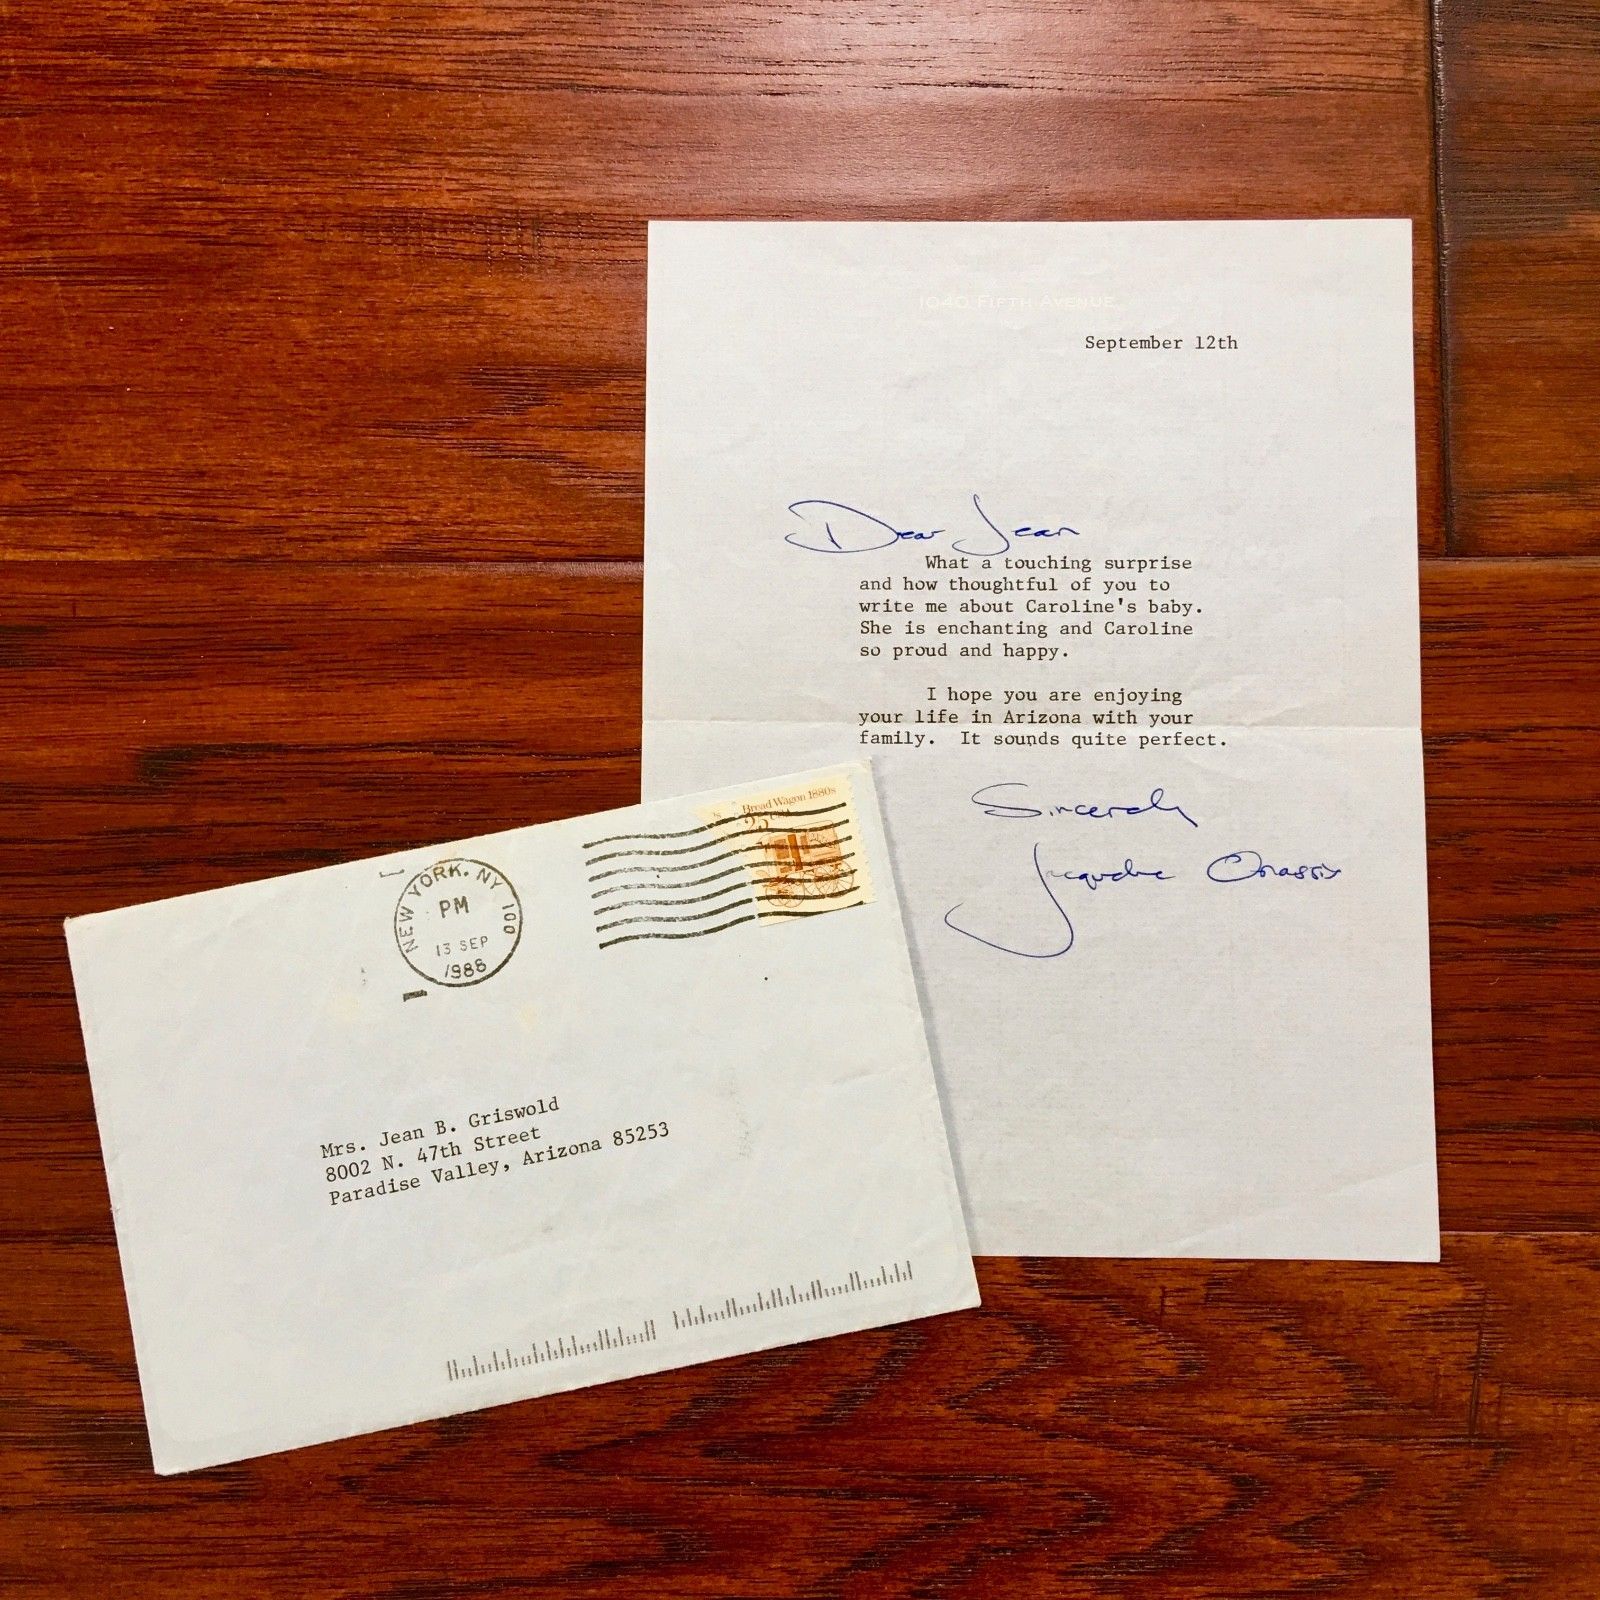 1040 FIFTH AVENUE
September 12th
Dear Jean
What a touching surprise
and how thoughtful of you to
write me about Caroline's baby.
She is enchanting and Caroline
so proud and happy.
I hope you are enjoying
your life in Arizona with your
family. It sounds quite perfect.
Sincerely
Jacqueline Onassis
Bread Wagon 1880s
25 USA
NEW YORK, NY 100
PM
13 SEP
1988
Mrs. Jean B. Griswold
8002 N. 47th Street
Paradise Valley, Arizona 85253